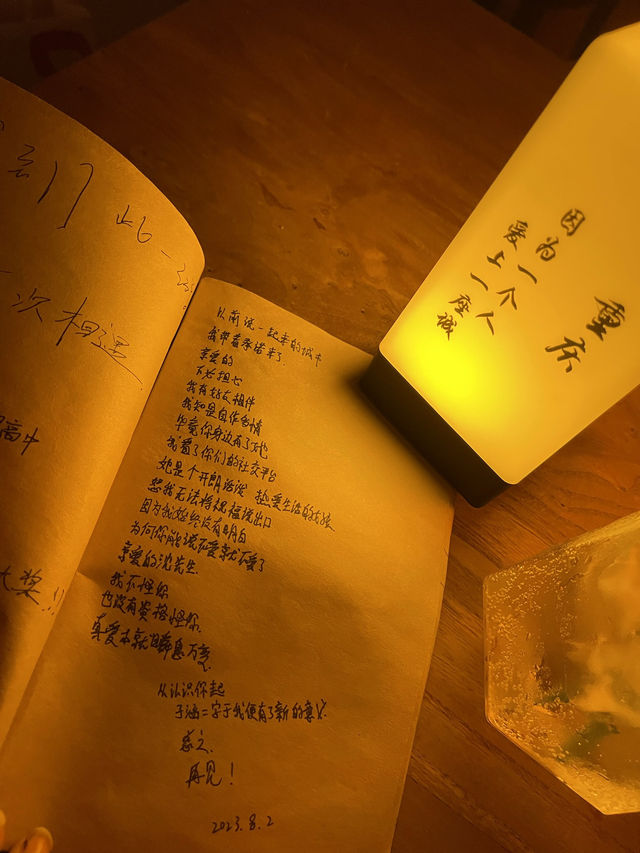 们 此一
一次相遇
高中
大奖!!
以前说一起来的城市
我带着承诺来了.
亲爱的
不必担心
我有好友相伴
我知是自作多情
毕竟你身边有了她
我看了你们的社交平台
她是个开朗活泼 热爱生活的女孩
恕我无法将祝福说出口
因为我始终没有明白
为何你能说不爱就不爱了
亲爱的沈先生.
我不怪你
也没有资格怪你.
真爱本就瞬息万变.
从认识你起
子涵二字于我便有了新的意义.
总之.
再见!
2023.8.2
重庆
因为一个人
爱上一座城